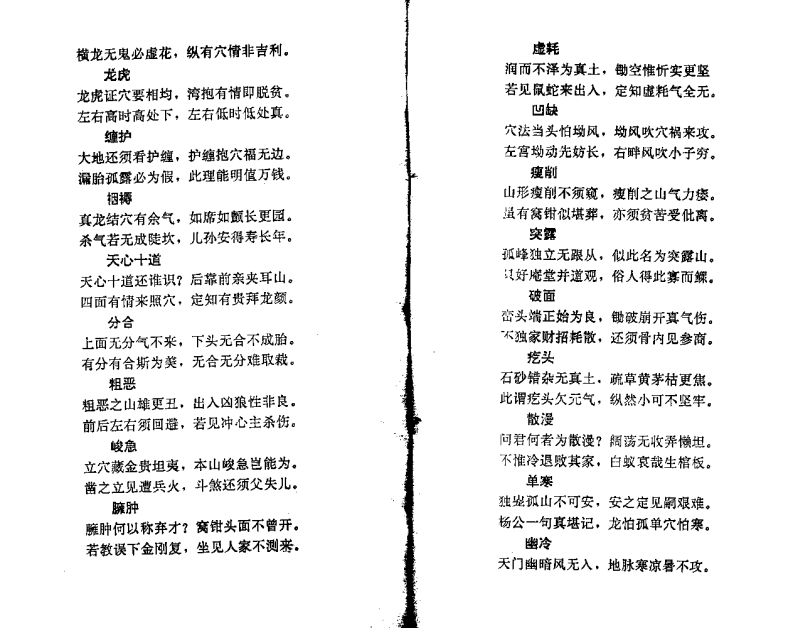 横龙无鬼必虚花，纵有穴情非吉利。
龙虎
龙虎证穴要相均，湾抱有情即脱贫。
左右高时高处下，左右低时低处真。
缠护
大地还须看护缠，护缠抱穴福无边。
漏胎孤露必为假，此理能明值万钱。
裀褥
真龙结穴有余气，如席如氈长更园。
杀气若无成陡坎，儿孙安得寿长年。
天心十道
天心十道还谁识？后靠前亲夹耳山。
四面有情来照穴，定知有贵拜龙颜。
分合
上面无分气不来，下头无合不成胎。
有分有合斯为美，无合无分难取裁。
粗恶
粗恶之山雄更丑，出入凶狼性非良。
前后左右须回避，若见冲心主杀伤。
峻急
立穴藏金贵坦夷，本山峻急岂能为。
凿之立见遭兵火，斗煞还须父失儿。
臃肿
臃肿何以称弃才？窝钳头面不曾开。
若教误下金刚复，坐见人家不测来。
虚耗
润而不泽为真土，锄空惟忻实更坚
若见鼠蛇来出入，定知虚耗气全无。
凹缺
穴法当头怕坳风，坳风吹穴祸来攻。
左宫坳动先妨长，右畔风吹小子穷。
瘦削
山形瘦削不须窥，瘦削之山气力痿。
虽有窝钳似堪葬，亦须贫苦受仳离。
突露
孤峰独立无跟从，似此名为突露山。
只好庵堂并道观，俗人得此寡而鳏。
破面
峦头端正始为良，锄破崩开真气伤。
不独家财招耗散，还须骨内见参商。
疙头
石砂错杂无真土，疏草黄茅枯更焦。
此谓疙头欠元气，纵然小可不坚牢。
散漫
问君何者为散漫？阔荡无收弄懒坦。
不惟冷退败其家，白蚁哀哉生棺板。
单寒
独垄孤山不可安，安之定见嗣艰难。
杨公一句真堪记，龙怕孤单穴怕寒。
幽冷
天门幽暗风无入，地脉寒凉暑不攻。